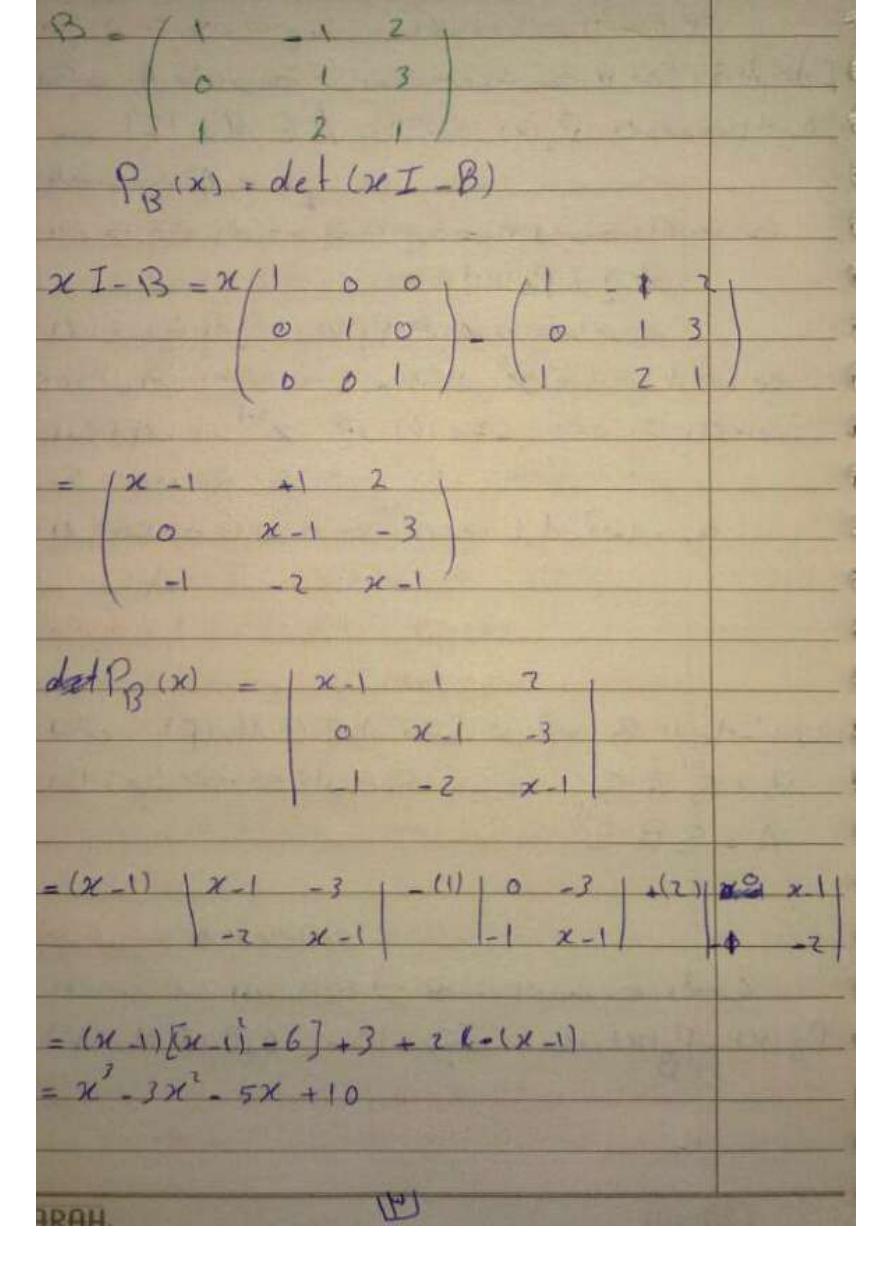 B = ( 1 -1 2
0 1 3
1 2 1 )
P_B (x) = det (xI - B)
x I - B = x ( 1 0 0 ) - ( 1 -1 2 )
0 1 0 0 1 3
0 0 1 1 2 1
= ( x-1 +1 2 )
0 x-1 -3
-1 -2 x-1
P_B (x) = | x-1 1 2 |
0 x-1 -3
-1 -2 x-1
= (x-1) | x-1 -3 | - (1) | 0 -3 | + (2) | 0 x-1 |
-2 x-1 -1 x-1 -1 -2
= (x-1)[x-1)² - 6] + 3 + 2 (-(x-1)
= x³ - 3x² - 5x + 10
ARAH